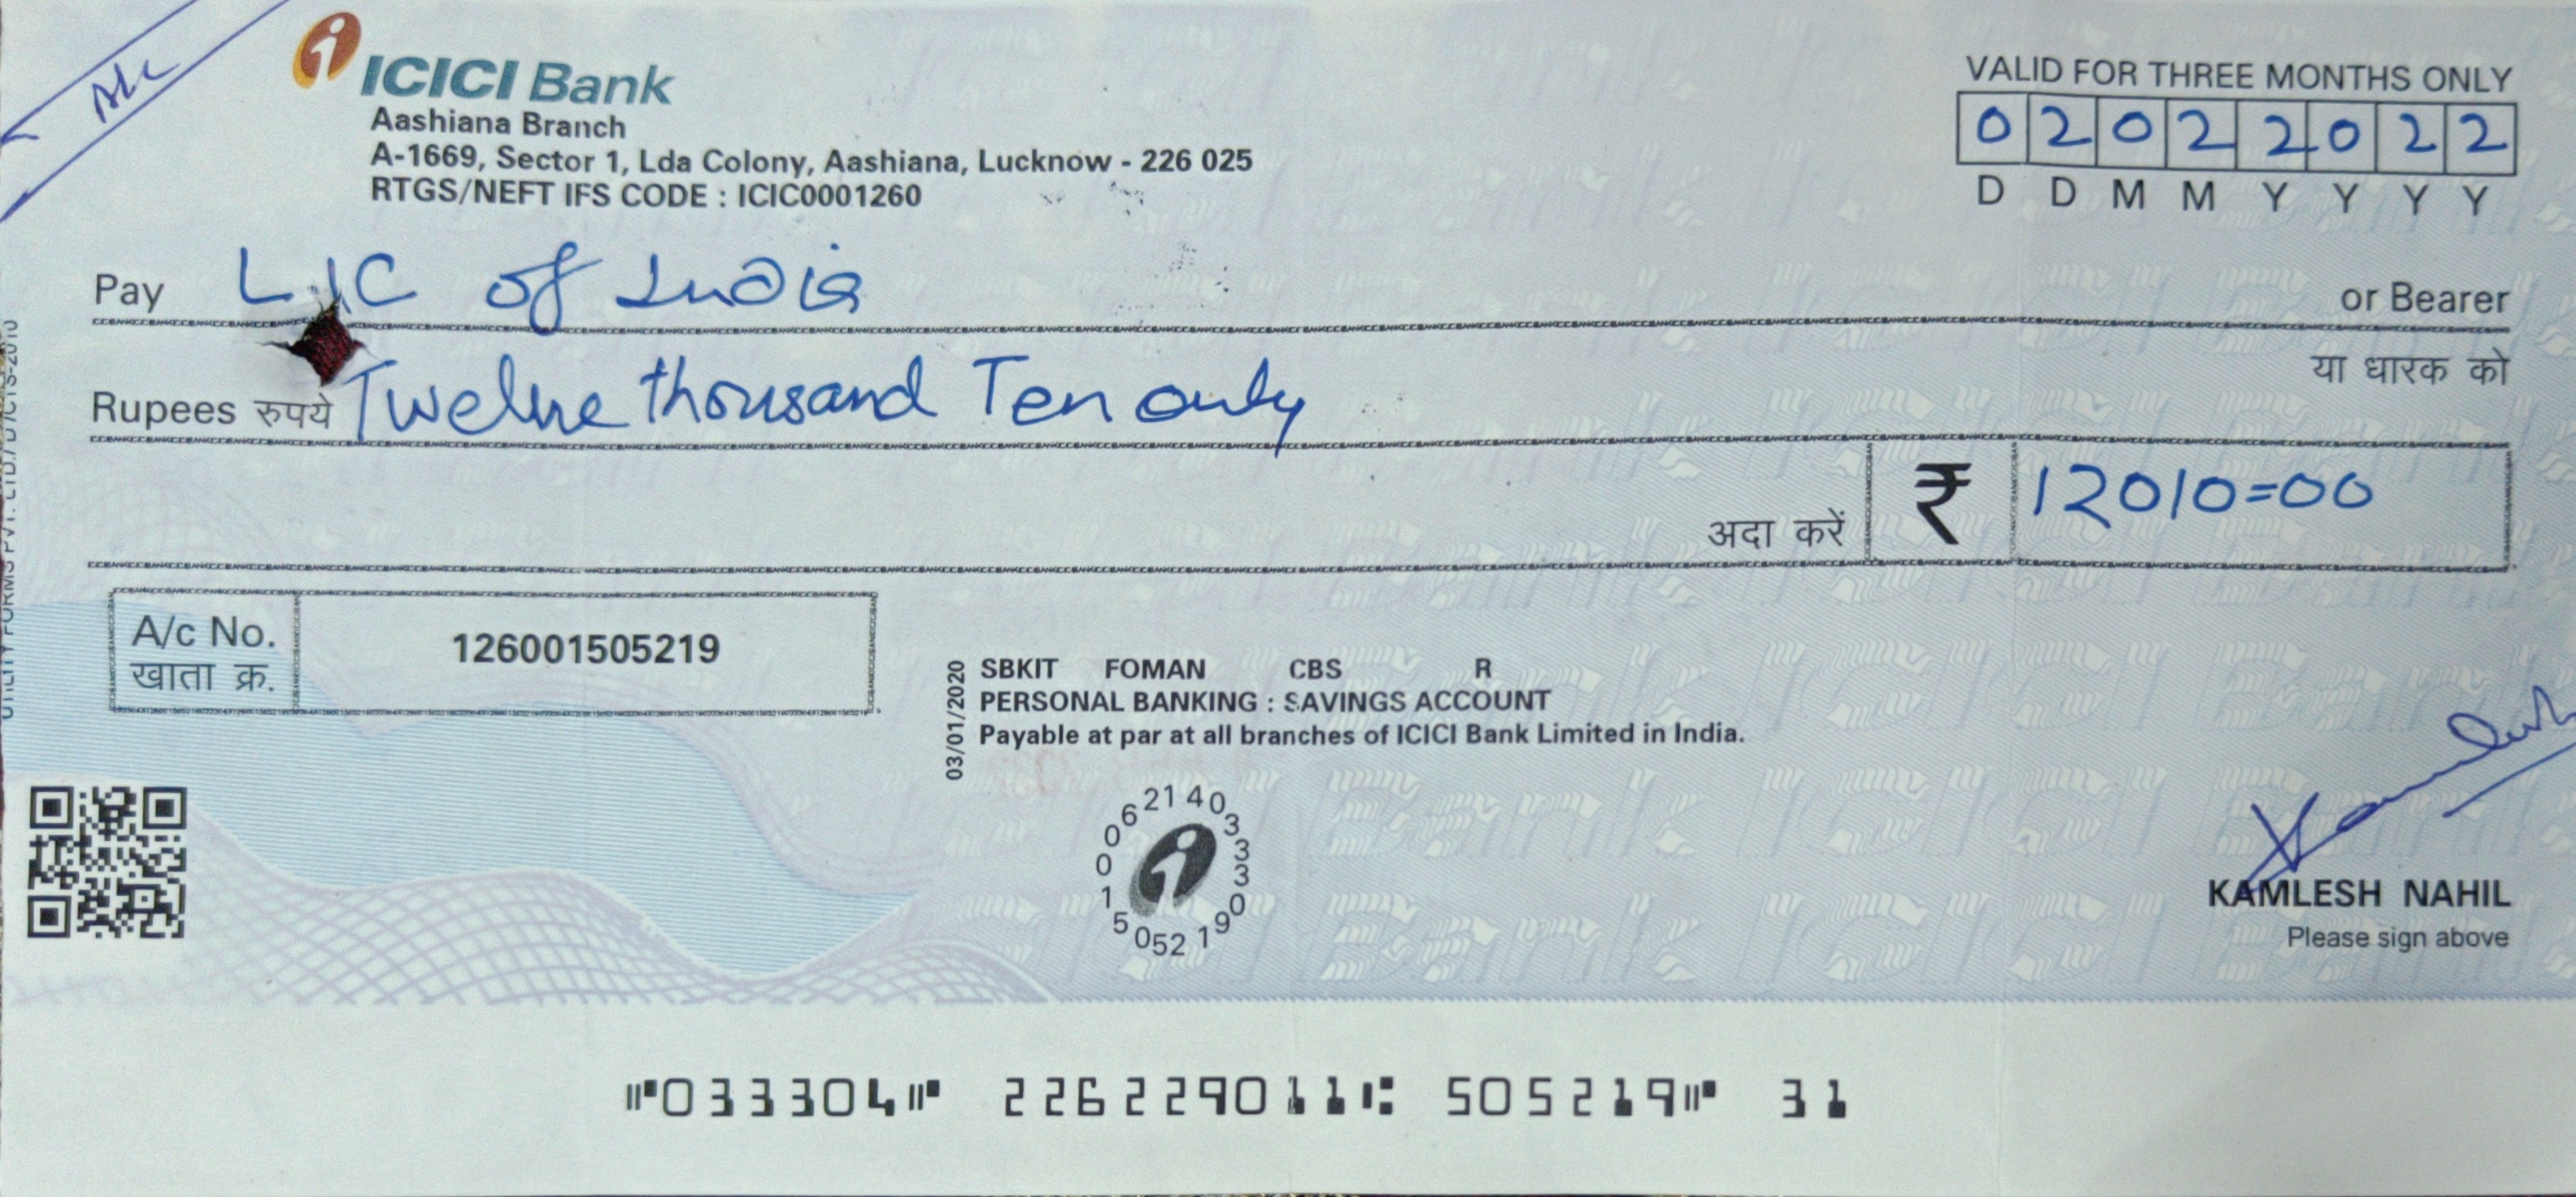 A/c
ICICI Bank
Aashiana Branch
A-1669, Sector 1, Lda Colony, Aashiana, Lucknow - 226 025
RTGS/NEFT IFS CODE : ICIC0001260
VALID FOR THREE MONTHS ONLY
0 2 0 2 2 0 2 2
D D M M Y Y Y Y
Pay LIC of India or Bearer
या धारक को
Rupees रुपये Twelve thousand Ten only
अदा करें ₹ 12010=00
A/c No. 126001505219
खाता क्र.
03/01/2020
SBKIT FOMAN CBS R
PERSONAL BANKING : SAVINGS ACCOUNT
Payable at par at all branches of ICICI Bank Limited in India.
Kamlesh
KAMLESH NAHIL
Please sign above
⑈033304⑈ 226229011⑆ 505219⑈ 31